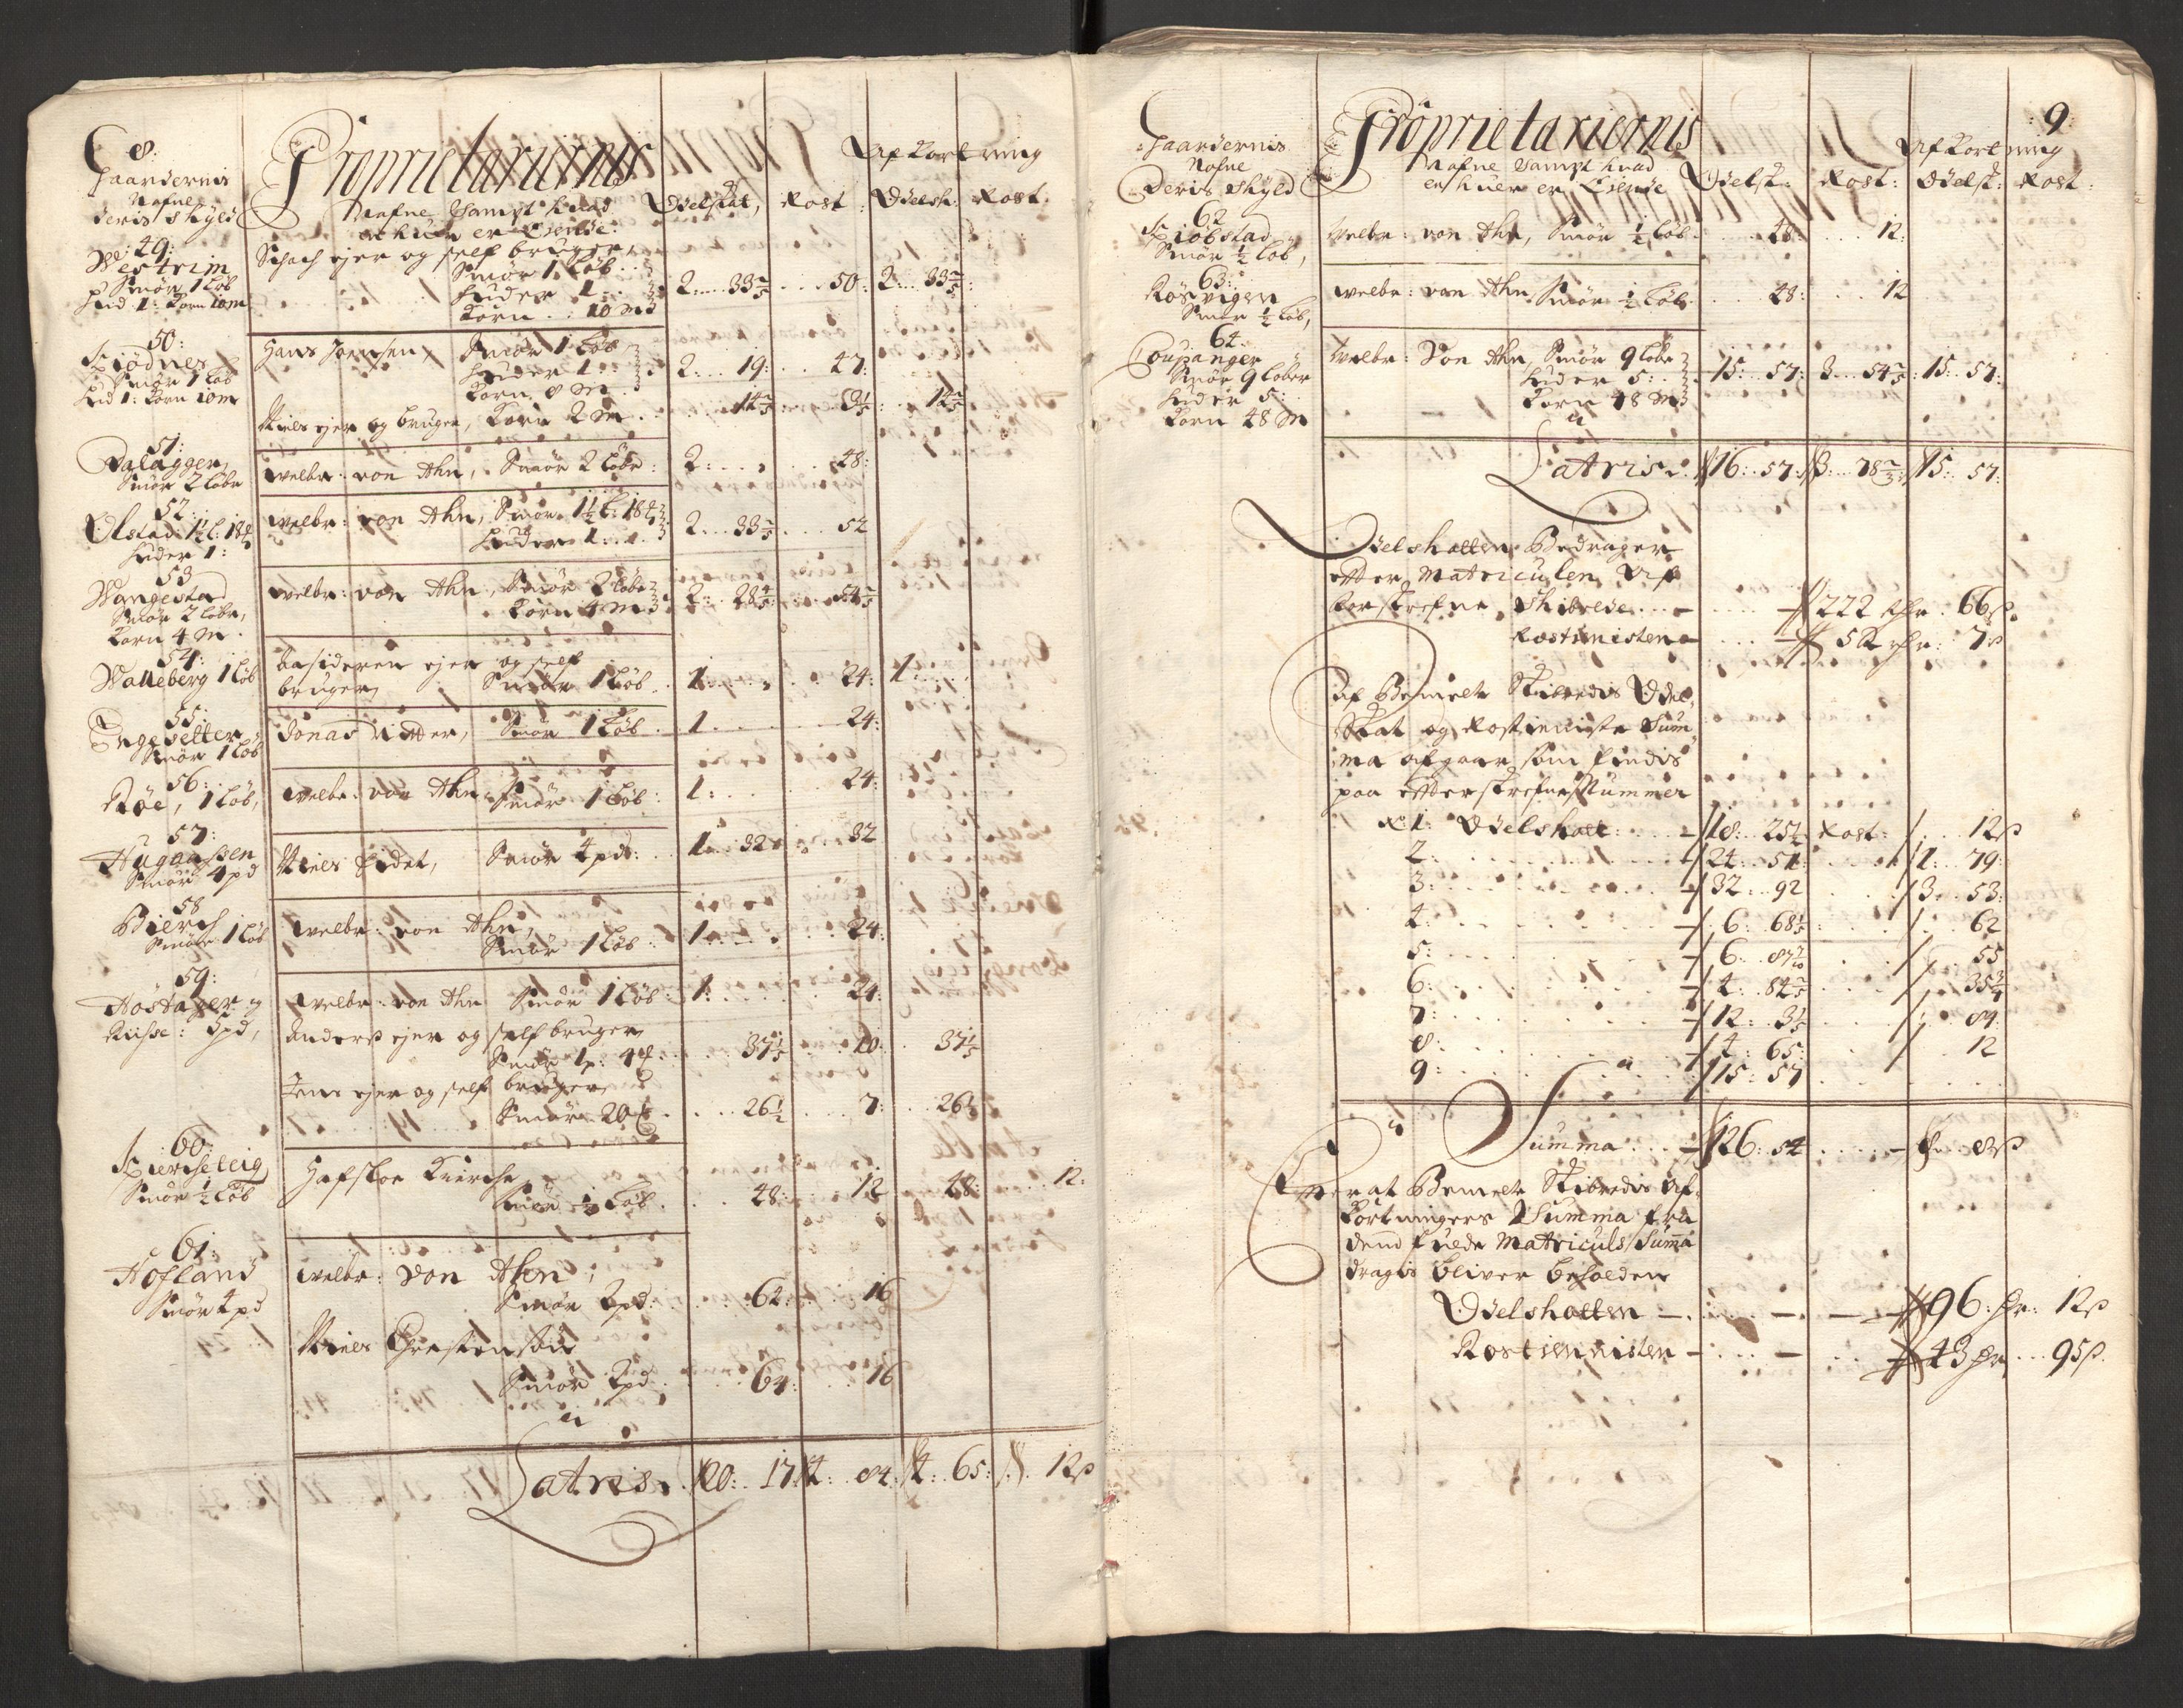 8.
Gaardernis
Nafne
deris Skyld
Proprietariernis
Nafne Sampt hvad
en huer er Eiende:
Afkortning
Odelskat, Rost: Odelsk: Rost:
49:
Westrim
Smør 1 Løb
Hud 1: Korn 10 M
Schach ejer og self bruger,
Smør 1 Løb
Huder 1
Korn 10 M
2 33 3/5 50: 2 33 3/5
50:
Kiødnes
Smør 1 Løb
Hud 1: Korn 10 M
Hans Jensen, Smør 1 Løb
Huder 1
Korn 8 M
2 19: 47:
Niels ejer og bruger, Korn 2 M 14 2/5 3 1/5 14 2/5
51:
Dalaggen
Smør 2 Løbe
welbr: von Ahn, Smør 2 Løbe: 2: 48:
52:
Olstad: 1½ L: 18
Huder 1:
welbr: von Ahn, Smør 1½ L: 18
Huder 1
2 33 3/5 52
53
Wangestad
Smør 2 Løbe,
Korn 4 M
welbr: von Ahn, Smør 2 Løbe
Korn 4 M
2: 28 4/5 54 2/5
54:
Walleberg 1 Løb
ejer og self
bruger Smør 1 Løb 1 24: 1:
55:
Engesetter
Smør 1 Løb
Jonas Smør 1 Løb 1 24:
56:
Røe, 1 Løb,
welbr: von Ahn Smør 1 Løb: 1: 24:
57:
Hugaassen
Smør 4 pd
Niels Eidet, Smør 4 pd: 1 32 32
58
Bierch
Smør 1 Løb
welbr: von Ahn,
Smør 1 Løb: 1 24:
59:
Høstager og
Riise: 5 pd,
welbr: von Ahn Smør 1 Løb: 1: 24:
Anders ejer og self bruger
37 1/5 10: 37 1/5
Jens ejer og self bruger
Smør 20 26½ 7: 26½
60:
Kiercheleig
Smør ½ Løb
Hafsloe Kierche
Smør ½ Løb 48: 12 48: 12:
61:
Hofland
Smør 4 pd
welbr: von Ahn,
Smør 2 pd: 64: 16
Niels Christensen
Smør 2 pd 64: 16
Latris 20: 17 4: 84: 4: 65: 12 ß
9:
Gaardernis
Nafne
Deris Skyld
Proprietariernis
Nafne Sampt hvad
en huer er Eiende
Afkortning
Odelsk: Rost: Odelsk: Rost:
62
Kiøbstad
Smør ½ Løb,
welbr: von Ahn, Smør ½ Løb 48: 12:
63:
Røsvigen
Smør ½ Løb,
welbr: von Ahn, Smør ½ Løb 48: 12
64:
Coupanger
Smør 9 Løber
Huder 5:
Korn 48 M
welbr: von Ahn, Smør 9 Løbe
Huder 5:
Korn 48 M
15: 57: 3 54 2/5 15 57:
Latris 16: 57: 3: 78 2/5 15: 57:
Odelskatten Bedrager
effter Matriculen Af
forskrefne Skibrede 222 rdr: 66 ß
Rostienisten 52 rdr: 7 ß
Af Bemelte Skibredis Odel
Skat og Rostieniste Sum
ma afgaar som findis
paa effterskrefne Nummer
N: 1: Odelskatt: 18: 25½ Rost: 12 ß
2: 24: 51: 1: 79:
3: 32: 92 3: 53:
4: 6: 68 1/5 62
5: 6: 87 55
6: 4: 84 2/5 35 3/4
7: 12: 3 1/5 84
8: 4: 65: 12
9: 15: 57
Summa 126: 54 8: 8 ß
Naar at Bemelte Skibredis Af
kortningers Summa fra
dend fulde Matriculs Summa
dragis bliver beholden
Odelskatten 96: dr: 12 ß
Rostienisten 43 dr 95 ß